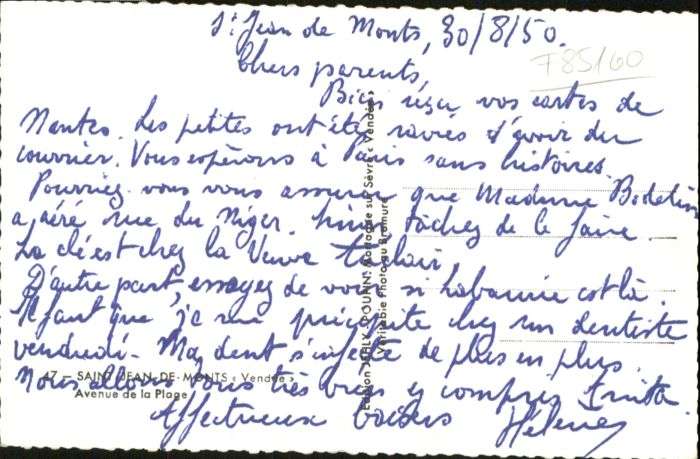 St Jean de Monts, 30/8/50.
F85/60
Chers parents,
Bien reçu vos cartes de
Nantes. Les petites ont été ravies d'avoir du
courrier. Vous espérons à Paris sans histoires.
Pourriez-vous vous assurer que Madame
a aéré rue du Niger. Sinon tâchez de le faire.
La clé est chez la Veuve
D'autre part, essayez de voir si est là.
Il faut que je me précipite chez un dentiste
vendredi. Ma dent s'infecte de plus en plus.
Nous allons tous très bien y compris
Affectueux baisers Hélène
47 — SAINT-JEAN-DE-MONTS « Vendée »
Avenue de la Plage
Mortagne sur Sèvre « Vendée »
Véritable Photo au Bromure